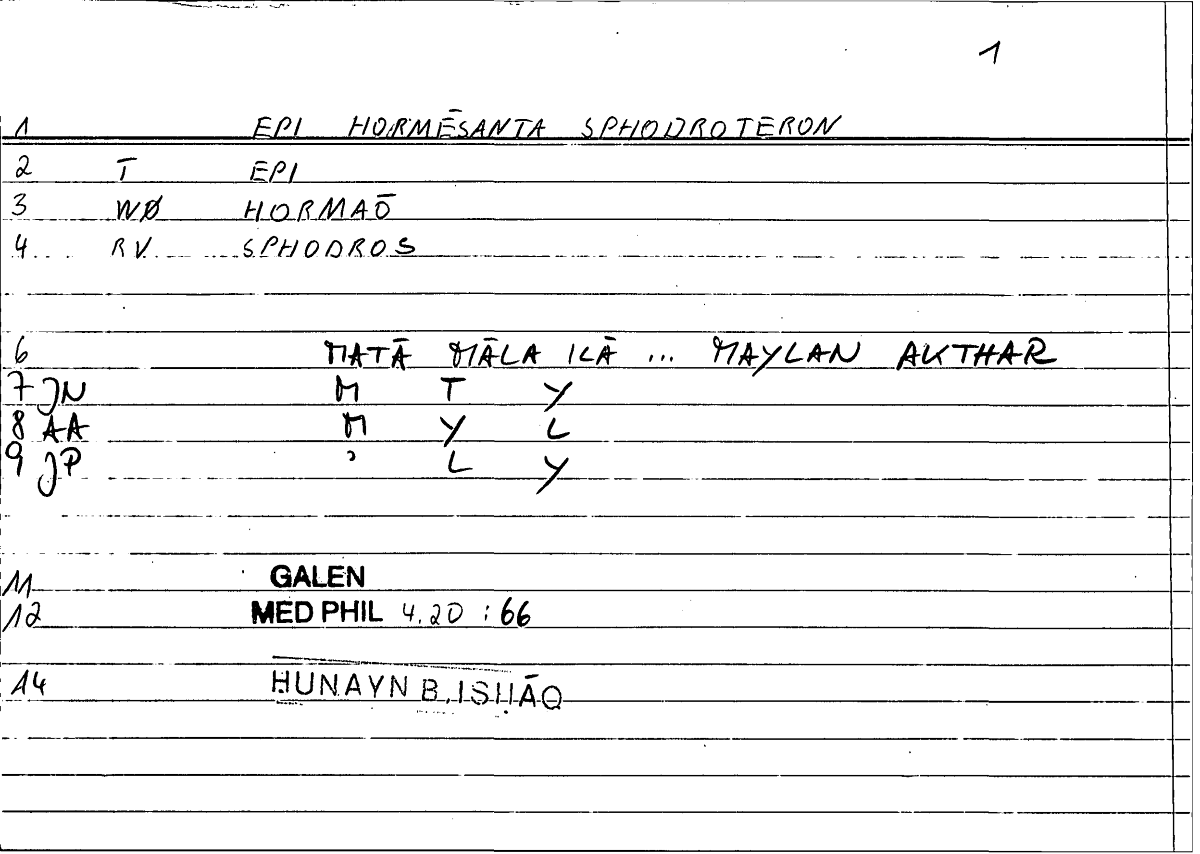 1
1 EPI HORMĒSANTA SPHODROTERON
2 T EPI
3 WØ HORMAŌ
4 RV SPHODROS
6 MATĀ MĀLA ILĀ ... MAYLAN AKTHAR
7 JN M T Y
8 AA M Y L
9 JP ' L Y
11 GALEN
12 MED PHIL 4.20 : 66
14 ḤUNAYN B. ISḤĀQ